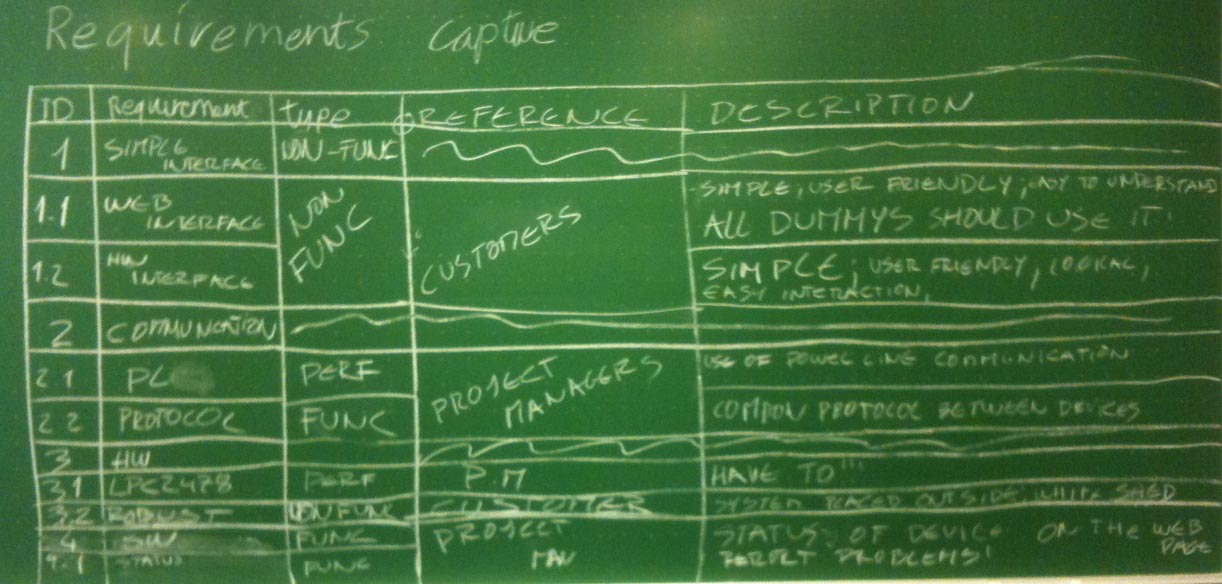 Requirements Captue
ID Requirement type REFERENCE DESCRIPTION
1 SIMPLE INTERFACE NON-FUNC
1.1 WEB INTERFACE NON FUNC CUSTOMERS SIMPLE, USER FRIENDLY, EASY TO UNDERSTAND
ALL DUMMYS SHOULD USE IT!
1.2 HW INTERFACE SIMPLE, USER FRIENDLY, LOOKAL,
EASY INTERACTION,
2 COMMUNICATION
2.1 PL PERF PROJECT MANAGERS USE OF POWER LINE COMMUNICATION
2.2 PROTOCOL FUNC COMMON PROTOCOL BETWEEN DEVICES
3 HW
3.1 LPC2478 PERF P.M HAVE TO!!!
3.2 ROBUST NON FUNC CUSTOMER SYSTEM PLACED OUTSIDE, SHED
4 SW FUNC PROJECT MAN STATUS OF DEVICE ON THE WEB PAGE
4.1 STATUS FUNC PROBLEMS!